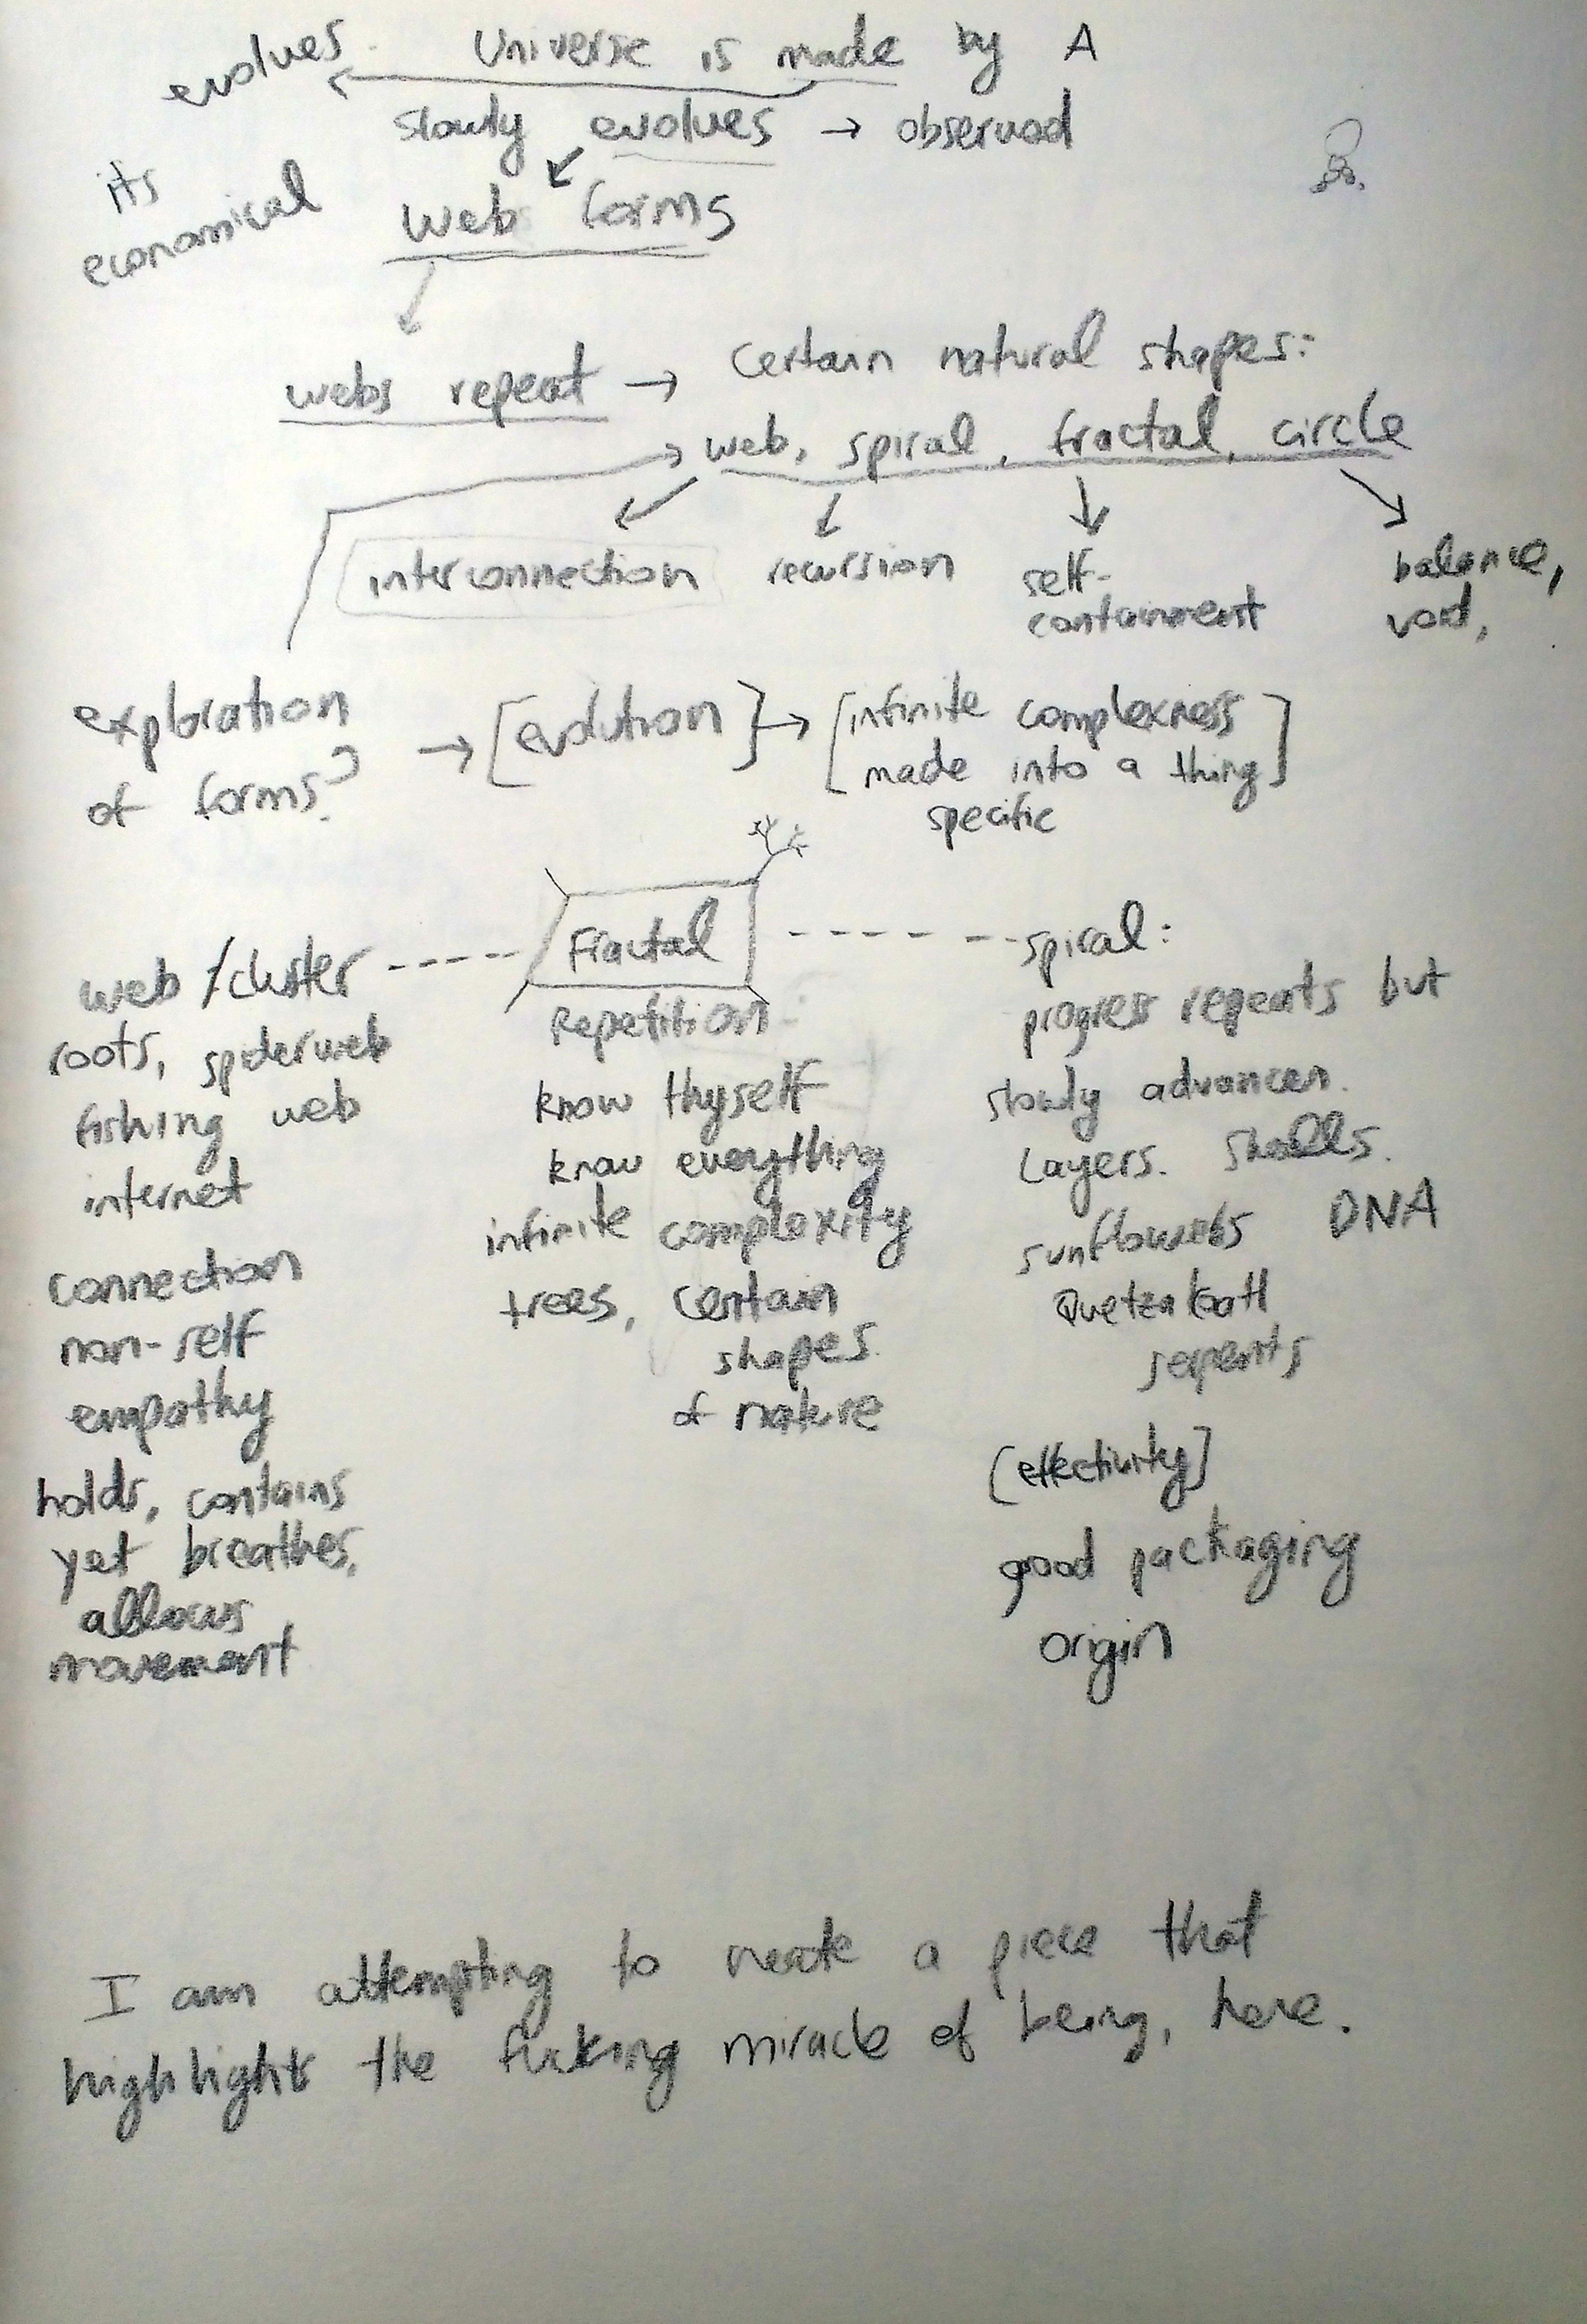 evolves
Universe is made by A
slowly evolves → observed
its
economical
web forms
webs repeat → Certain natural shapes:
web, spiral, fractal, circle
interconnection recursion self-
containment
balance,
void,
exploration
of forms?
→ [evolution] → [infinite complexness
made into a thing]
specific
Fractal
Repetition
web/cluster
roots, spiderweb
fishing web
internet
connection
non-self
empathy
holds, contains
yet breathes,
allows
movement
know thyself
know everything
infinite complexity
trees, certain
shapes
of nature
spiral:
progress repeats but
slowly advances.
Layers. Shells.
sunflowers DNA
Quetzalcoatl
serpents
[effectivity]
good packaging
origin
I am attempting to create a piece that
highlights the fucking miracle of being, here.